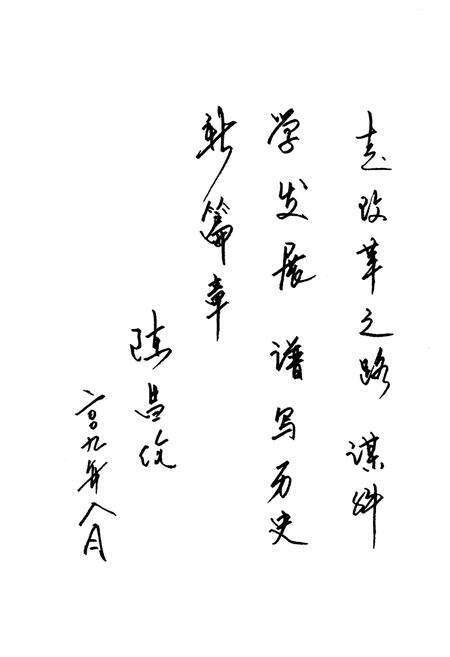 走改革之路 谋科
学发展 谱写历史
新篇章
陈昌
二〇〇九年八月